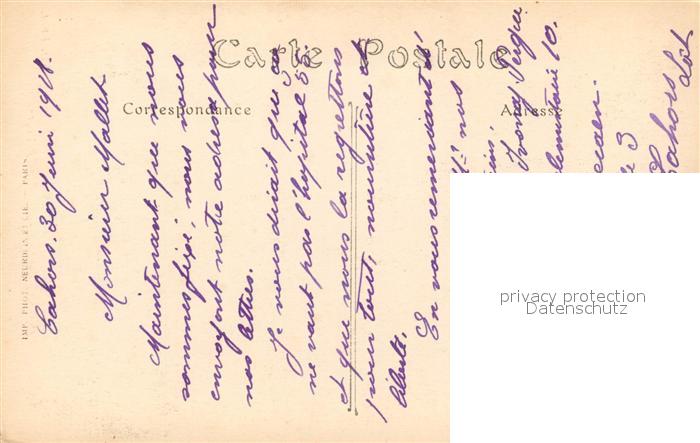 Carte Postale
Correspondance
Adresse
IMP. PHOT. NEURDEIN ET CIE. PARIS
Cahors. 30 Juin 1918.
Monsieur Mallet
Maintenant que nous
sommes fixé, nous vous
envoyons notre adresse pour
nos lettres.
Je vous dirait que ça
ne vaut pas l'hopital 55.
et que nous la regrettons
pour tout, nourriture et
liberté.
En vous remerciant
nos
10.
3
Cahors
Lot
privacy protection
Datenschutz